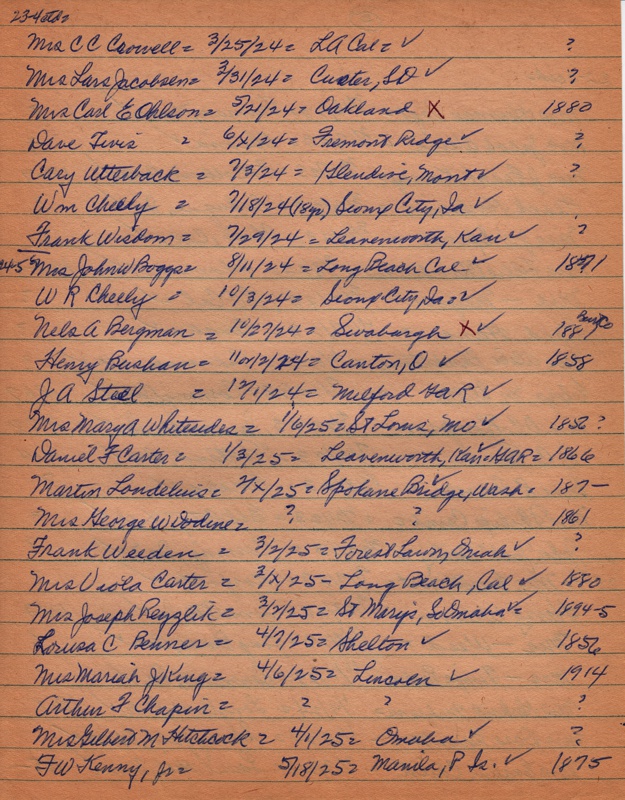 Mrs C C Crowell = 3/25/24 = LA Cal = ✓ ?
Mrs Lars Jacobsen = 3/31/24 = Custer, SD ✓ ?
Mrs Carl E Ohlson = 5/21/24 = Oakland X 1880
Dave Tivis = 6/x/24 = Fremont Ridge ✓ ?
Cary Utterback = 7/3/24 = Glendive, Mont ✓ ?
Wm Cheely = 7/18/24 (18yr) Sioux City, Ia ✓
Frank Wisdom = 7/29/24 = Leavenworth, Kan ✓ ?
Mrs John W Boggs = 8/11/24 = Long Beach Cal ✓ 1871
W R Cheely = 10/3/24 = Sioux City, Ia = ✓
Nels A Bergman = 10/27/24 = Swaburgh X ✓ 188
Henry Bushan = 11 or 12/24 = Canton, O ✓ 1858
J A Steel = 12/1/24 = Milford GAR ✓
Mrs Mary A Whitesides = 1/6/25 = St Louis, Mo ✓ 1856 ?
Daniel F Carter = 1/3/25 = Leavenworth, Kan = GAR = 1866
Martin Londelius = 2/x/25 = Spokane Bridge, Wash = 187-
Mrs George W Dodine = ? ? 1861
Frank Weeden = 3/2/25 = Forest Lawn, Omah ✓ ?
Mrs Viola Carter = 3/x/25 - Long Beach, Cal ✓ 1880
Mrs Joseph = 3/2/25 = St Marys, So Omaha ✓ = 1894-5
C Benner = 4/7/25 = Shelton ✓ 1856
Mrs Mariah J King = 4/6/25 = Lincoln ✓ 1914
Arthur F Chapin = ? ? ?
Mrs Gilbert M Hitchcock = 4/1/25 = Omaha ✓ ?
F W Kenny, Jr = 5/18/25 = Manila, P Is. ✓ 1875